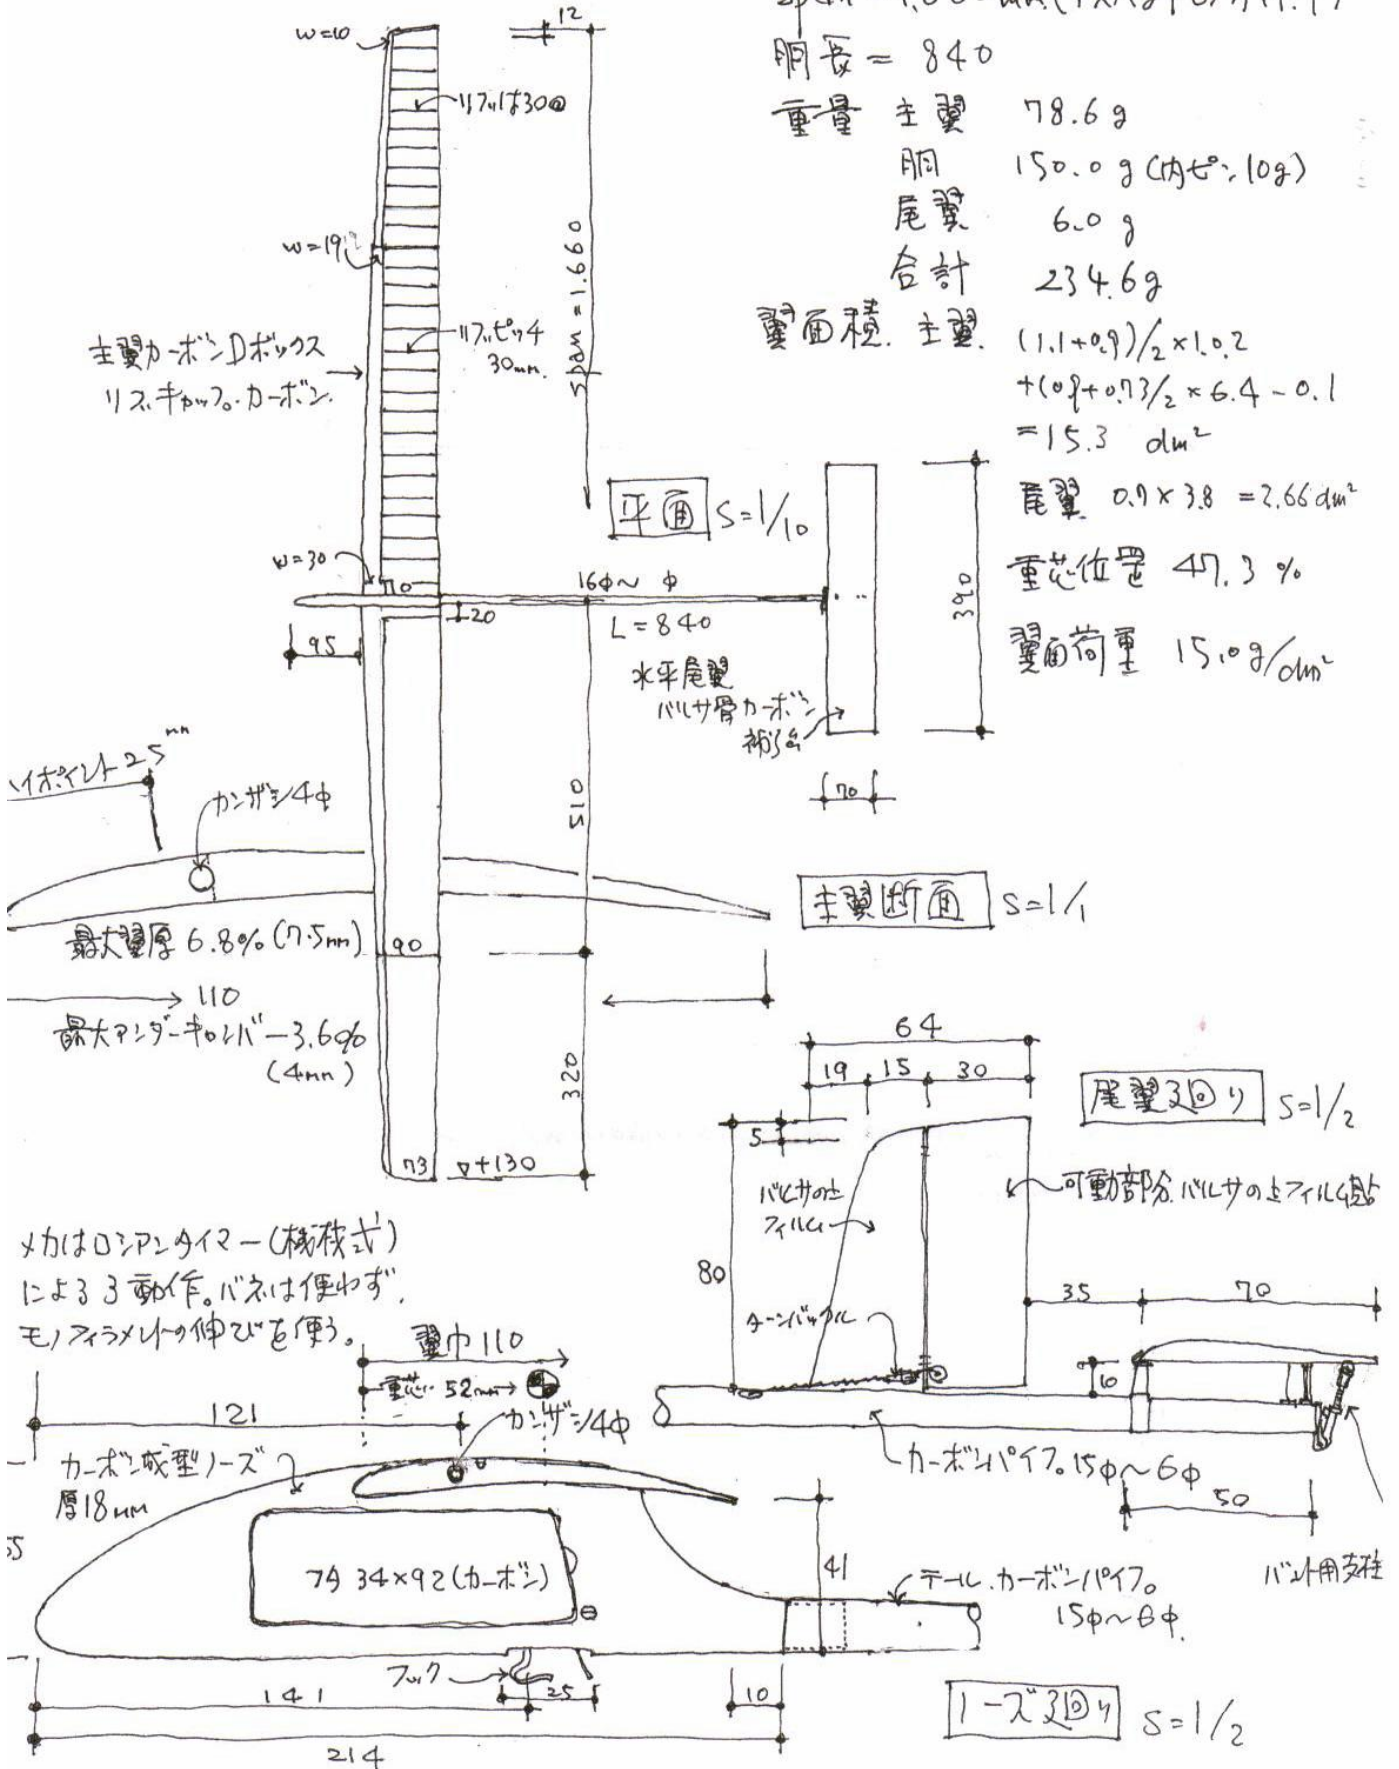 胴長= 840
重量 主翼 78.6g
胴 150.0g(内ピン10g)
尾翼 6.0g
合計 234.6g
翼面積. 主翼. (1.1+0.9)/2×10.2
+(0.9+0.73/2×6.4-0.1
=15.3 dm²
尾翼 0.7×3.8=2.66dm²
重芯位置 47.3%
翼面荷重 15.0g/dm²
w=10
12
リブは30@
w=19
span=1.660
主翼カーボンDボックス
リブ.キャップ.カーボン.
リブピッチ
30mm.
平面 S=1/10
w=30
16φ〜 φ
20
L=840
95
390
水平尾翼
バルサ骨カーボン
70
510
ハイポイント25mm
カンザシ4φ
主翼断面 S=1/1
最大翼厚6.8%(7.5mm)
90
110
最大アンダーキャンバー3.6%
(4mm)
320
73
▽+130
64
19 15 30
尾翼廻り S=1/2
5
バルサの上
フィルム
可動部分.バルサの上フィルム貼
80
ターンバックル
35 70
メカはロシアンタイマー(機械式)
による3動作。バネは使わず.
モノフィラメントの伸びを使う。
翼巾110
重芯 52mm
121
カンザシ4φ
カーボン成型ノーズ
厚18mm
カーボンパイプ。15φ〜6φ
50
バント用支柱
フタ 34×92(カーボン)
41
テール.カーボンパイプ。
15φ〜6φ.
フック
141
25
10
214
ノーズ廻り S=1/2